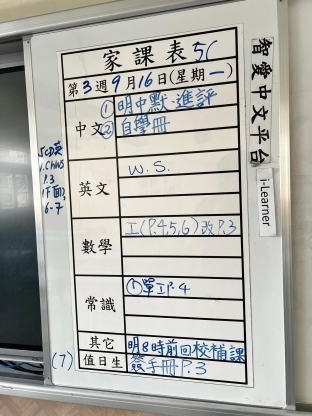 家課表 5C
第3週9月16日(星期一)
中文
①明中默、進評
②自學冊
英文
W.S.
數學
工(P.4,5,6)改P.3
常識
①單工P.4
其它
明8時前回校補課
值日生
簽手冊P.3
(7)
5CD英
P.3
(下面)
6-7
智愛中文平台
i-Learner